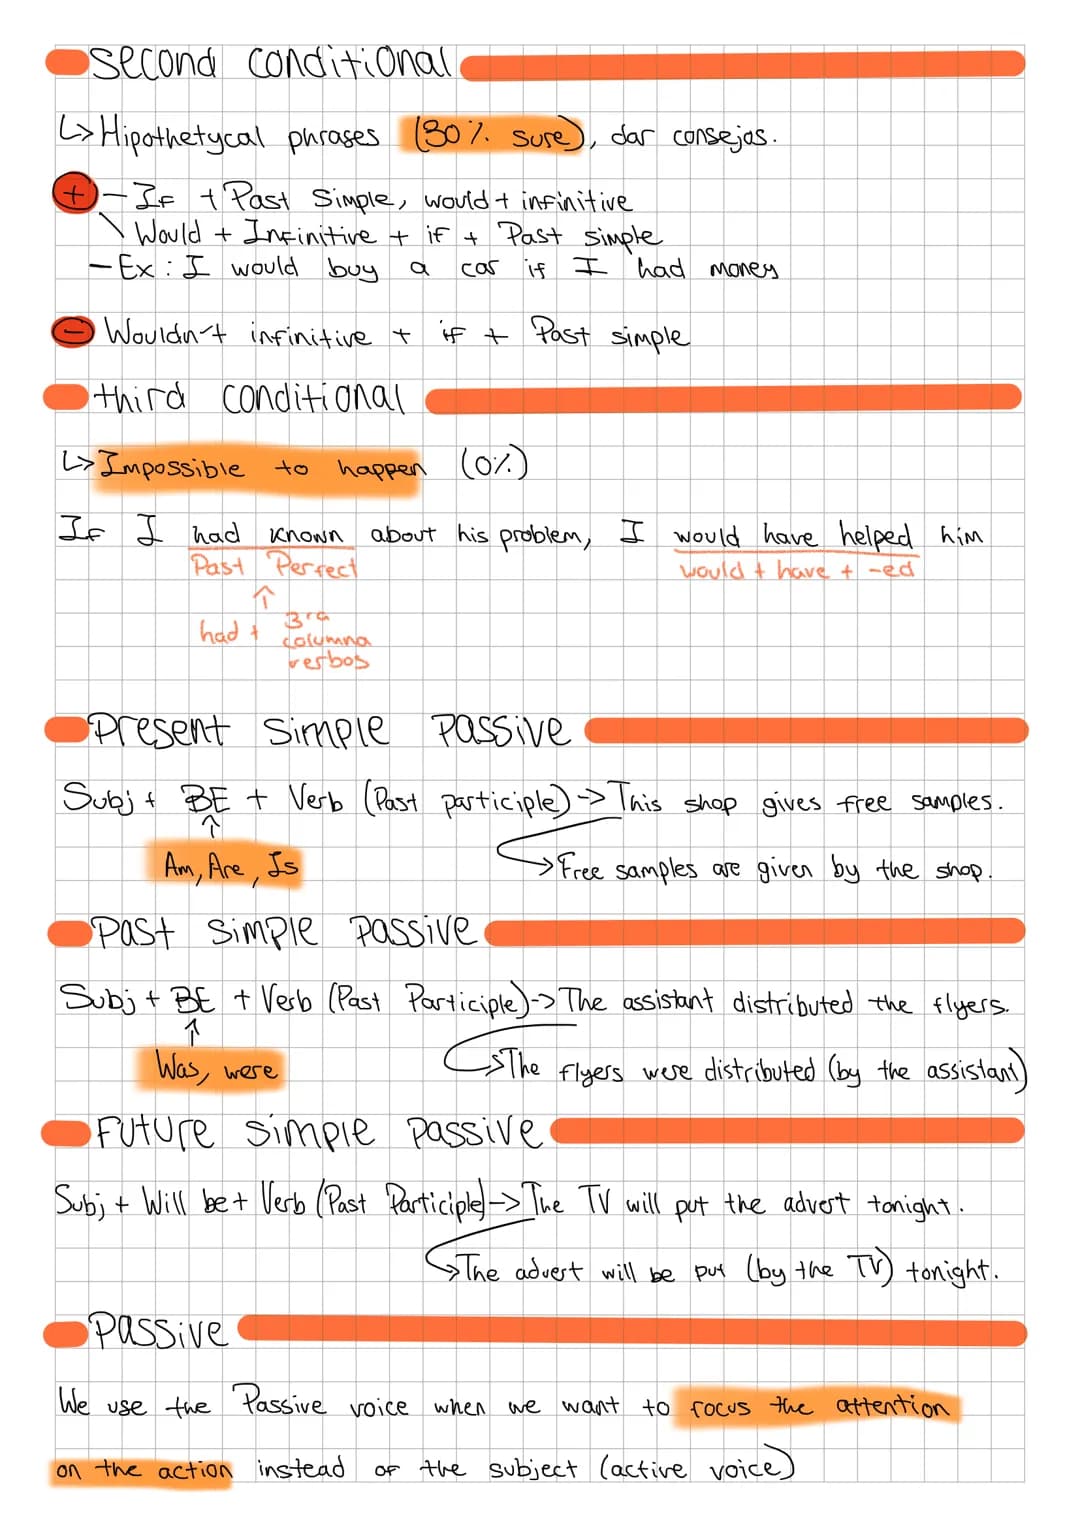 Second conditional
↳ Hipothetycal phrases (30% sure), dar consejos.
+ - If + Past Simple, would + infinitive
\ Would + Infinitive + if + Past simple
- Ex: I would buy a car if I had money
- Wouldn't infinitive + if + Past simple
third conditional
↳ Impossible to happen (0%)
If I had known about his problem, I would have helped him
Past Perfect would + have + -ed
↑
had + 3ra columna verbos
Present simple Passive
Subj + BE + Verb (Past participle) -> This shop gives free samples.
↑
Am, Are, Is -> Free samples are given by the shop.
Past simple Passive
Subj + BE + Verb (Past Participle) -> The assistant distributed the flyers.
↑
Was, were -> The flyers were distributed (by the assistant)
Future simple Passive
Subj + Will be + Verb (Past Participle) -> The TV will put the advert tonight.
-> The advert will be put (by the TV) tonight.
Passive
We use the Passive voice when we want to focus the attention
on the action instead of the subject (active voice)